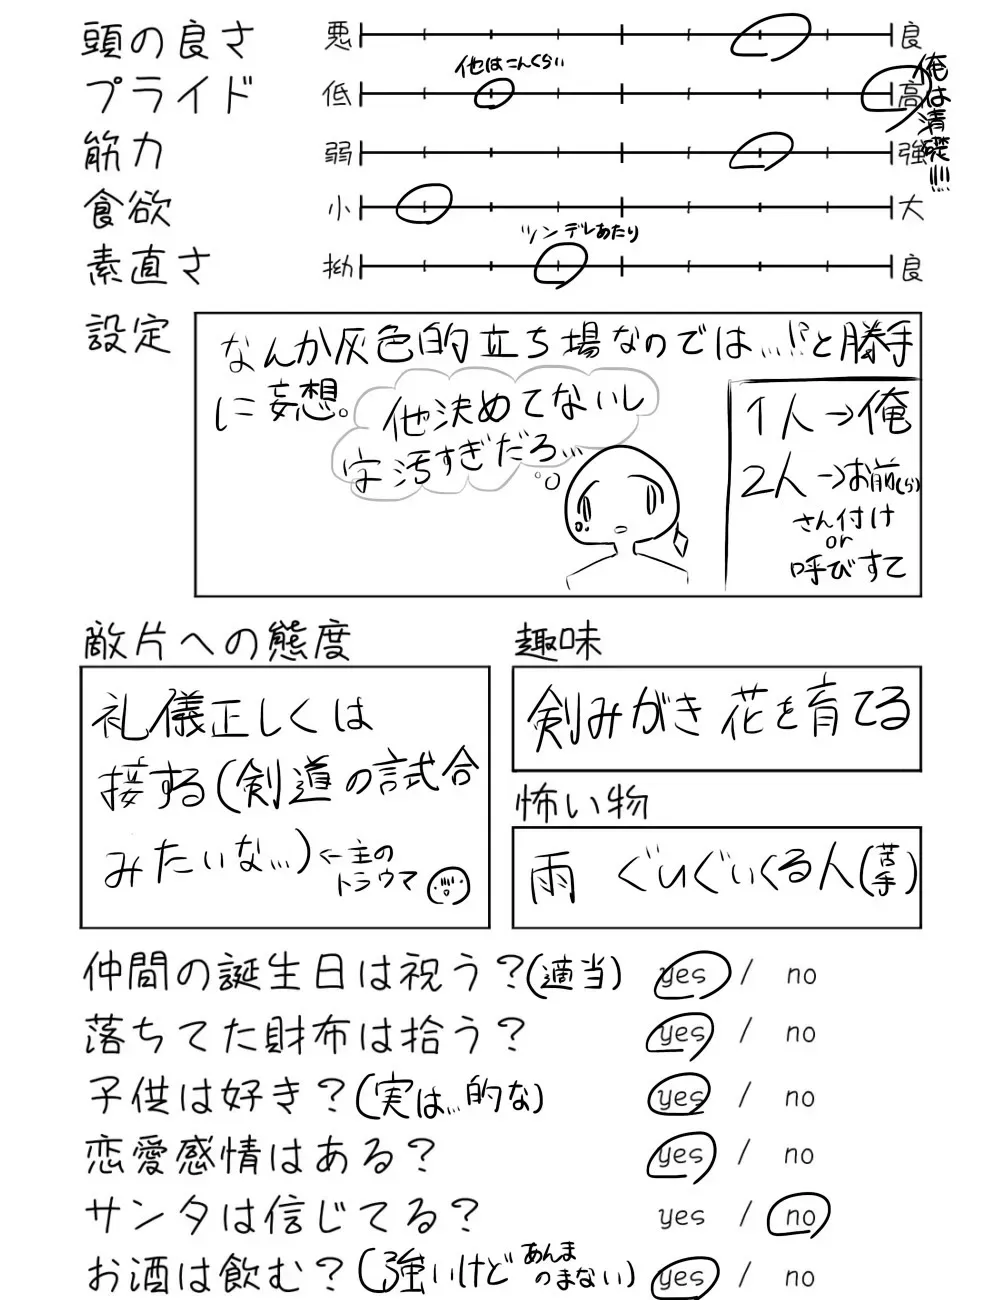 頭の良さ 悪 良
他はこんくらい
プライド 低 高
俺は清礎!!!!
筋力 弱 強
食欲 小 大
ツンデレあたり
素直さ 拗 良
設定
なんか灰色的立ち場なのでは...!?と勝手
に妄想。
他決めてないし
字汚すぎだろ...
1人→俺
2人→お前(ら)
さん付け
or
呼びすて
敵片への態度
礼儀正しくは
接する(剣道の試合
みたいな...)←主の
トラウマ
趣味
剣みがき 花を育てる
怖い物
雨 ぐいぐいくる人(苦手)
仲間の誕生日は祝う?(適当) yes / no
落ちてた財布は拾う? yes / no
子供は好き?(実は...的な) yes / no
恋愛感情はある? yes / no
サンタは信じてる? yes / no
お酒は飲む?(強いけどあんまのまない) yes / no